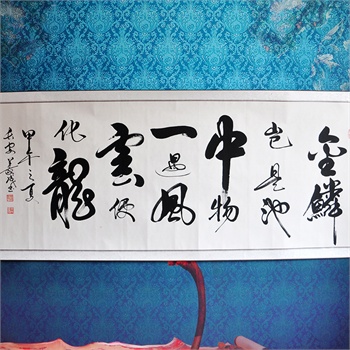 金鱗
岂是池
中物
一遇風
雲便
化龍
甲午之夏